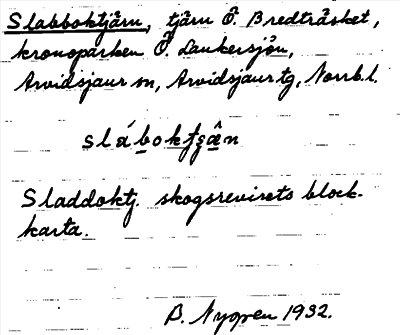 Slabboktjärn, tjärn Ö. Bredträsket,
kronoparken Ö. Laukersjön,
Arvidsjaur sn, Arvidsjaur tg, Norrb. l.
Sladdoktj. skogsrevirets block-
karta.
B. Nygren 1932.